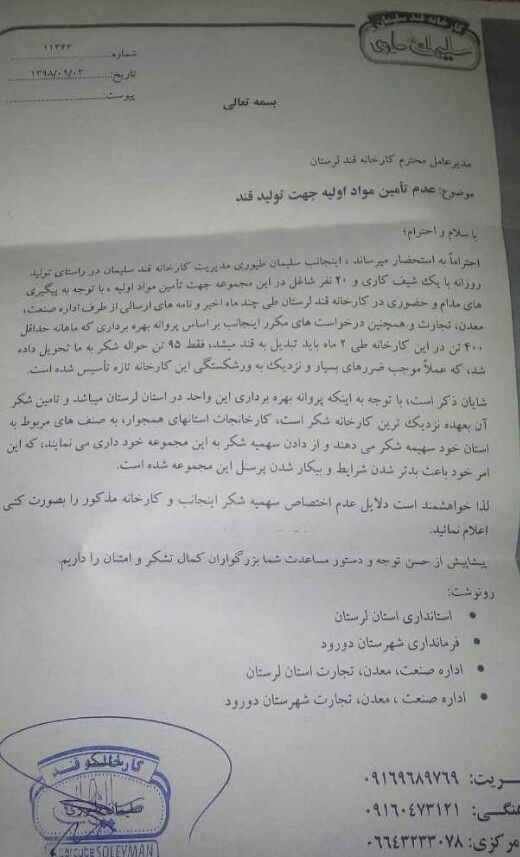 کارخانه قند سلیمان
سلیمان طیوری
شماره: ۱۱۳۴۴
تاریخ: ۱۳۹۸/۰۹/۰۳
پیوست:
بسمه تعالی
مدیرعامل محترم کارخانه قند لرستان
موضوع: عدم تأمین مواد اولیه جهت تولید قند
با سلام و احترام؛
احتراماً به استحضار میرساند ، اینجانب سلیمان طیوری مدیریت کارخانه قند سلیمان در راستای تولید
روزانه با یک شیف کاری و ۲۰ نفر شاغل در این مجموعه جهت تأمین مواد اولیه ، با توجه به پیگیری
های مدام و حضوری در کارخانه قند لرستان طی چند ماه اخیر و نامه های ارسالی از طرف اداره صنعت،
معدن، تجارت و همچنین درخواست های مکرر اینجانب بر اساس پروانه بهره برداری که ماهانه حداقل
۴۰۰ تن در این کارخانه طی ۲ ماه باید تبدیل به قند میشد، فقط ۹۵ تن حواله شکر به ما تحویل داده
شد، که عملاً موجب ضررهای بسیار و نزدیک به ورشکستگی این کارخانه تازه تأسیس شده است.
شایان ذکر است، با توجه به اینکه پروانه بهره برداری این واحد در استان لرستان میباشد و تامین شکر
آن بعهده نزدیک ترین کارخانه شکر است، کارخانجات استانهای همجوار، به صنف های مربوط به
استان خود سهیمه شکر می دهند و از دادن سهمیه شکر به این مجموعه خود داری می نمایند، که این
امر خود باعث بدتر شدن شرایط و بیکار شدن پرسنل این مجموعه شده است.
لذا خواهشمند است دلایل عدم اختصاص سهمیه شکر اینجانب و کارخانه مذکور را بصورت کتبی
اعلام نمائید.
پیشاپیش از حسن توجه و دستور مساعدت شما بزرگواران کمال تشکر و امتنان را داریم.
رونوشت:
• استانداری استان لرستان
• فرمانداری شهرستان دورود
• اداره صنعت، معدن، تجارت استان لرستان
• اداره صنعت ، معدن، تجارت شهرستان دورود
کارخانه قند
سلیمان طیوری
SOLEYMAN
ریت: ۰۹۱۶۹۶۸۹۷۶۹
نگی: ۰۹۱۶۰۴۷۳۱۲۱
مرکزی: ۰۶۶۴۳۲۳۳۰۷۸